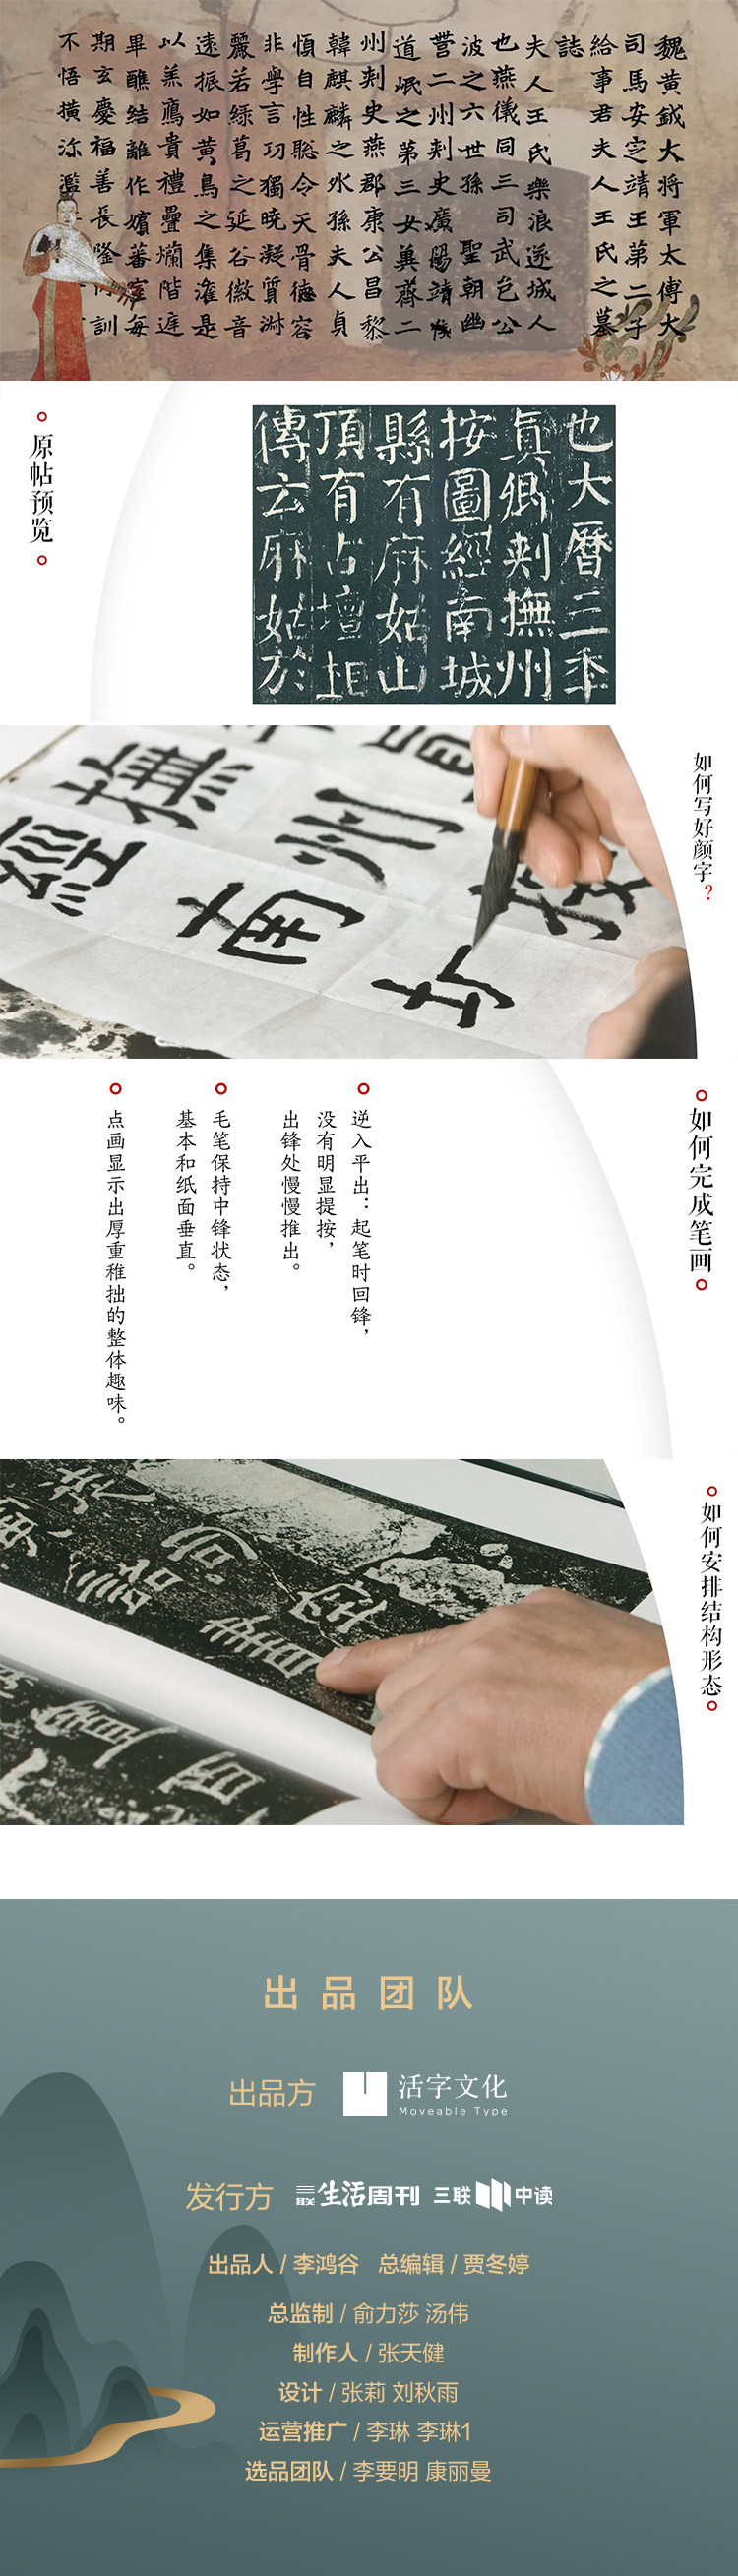 魏黄钺大将軍太傅大
司馬安定靖王第二子
給事君夫人王氏之墓
誌
夫人王氏樂浪遂城人
也燕儀同三司武邑公
波之六世孫聖朝幽
營二州刺史廣陽靖侯
道岷之第三女冀齊二
州刺史燕郡康公昌黎
韓麒麟之外孫夫人貞
恒自性聡令天骨德容
非學言功獨曉凝質淑
麗若綠葛之延谷徽音
遠振如黄鳥之集灌是
以羔鴈貴禮疊爛階庭
畢醮結離作嬪蕃室每
期玄慶福善長隆
訓
不悟横
濫
原帖预览
也大曆三年
真卿刺撫州
按圖經南城
縣有麻姑山
頂有古壇相
傳云麻姑於
如何写好颜字?
撫
州
經
南
如何完成笔画
逆入平出：起笔时回锋，
没有明显提按，
出锋处慢慢推出。
毛笔保持中锋状态，
基本和纸面垂直。
点画显示出厚重稚拙的整体趣味。
如何安排结构形态
出品团队
出品方 活字文化
Moveable Type
发行方 三联生活周刊 三联中读
出品人 / 李鸿谷 总编辑 / 贾冬婷
总监制 / 俞力莎 汤伟
制作人 / 张天健
设计 / 张莉 刘秋雨
运营推广 / 李琳 李琳1
选品团队 / 李要明 康丽曼